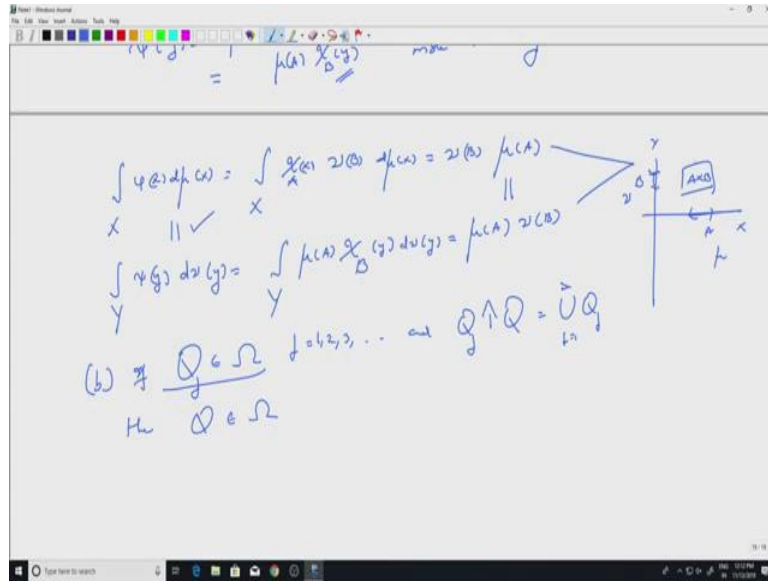 Note1 - Windows Journal
File Edit View Insert Actions Tools Help
B I
= μ(A) χ_B(y)
∫_X φ(x) dμ(x) = ∫_X χ_A(x) ν(B) dμ(x) = ν(B) μ(A)
|| ✓ ||
∫_Y ψ(y) dν(y) = ∫_Y μ(A) χ_B(y) dν(y) = μ(A) ν(B)
Y
B
ν
A×B
A
X
μ
(b) If Q_j ∈ Ω j = 1, 2, 3, ... and Q_j ↑ Q = ∪ Q_j
the Q ∈ Ω
Type here to search
ENG 12:12 PM
IN